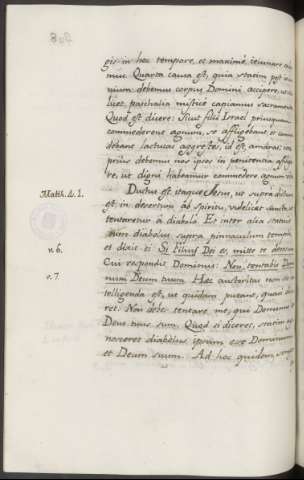 gis in hoc tempore, et maximè, ieiunare
mus. Quarta causa est, quia statim post
nium debemus corpus Domini accipere, ut
licet, paschalia misticè capiamus sacramenta
Quod est dicere: Sicut filij Israel priusquam
commederent agnum, se affligebant, et
debant lactucas agrestes, id est, amaras:
prius debemus nos ipsos in penitentia
re, ut dignè habeamur commedere agnum
Matth. 4. 1. Ductus est itaque Jesus, ut supra dictum
est, in desertum ab spiritu, videlicet sancto, ut
tentaretur à diabolo. Et inter alia statuit
eum diabolus supra pinnaculum templi,
n. 6. et dixit ei Si Filius Dei es, mitte te deorsum
Cui respondit Dominus: Non tentabis Domi
v. 7. num Deum tuum. Hæc auctoritas non
telligenda est, ut quidam putant, quasi
ret. Non debes tentare me, qui Dominus
Deus tuus sum. Quod si diceres, statim
nosceret diabolus ipsum esse Dominum
et Deum suum. Ad hoc quidem